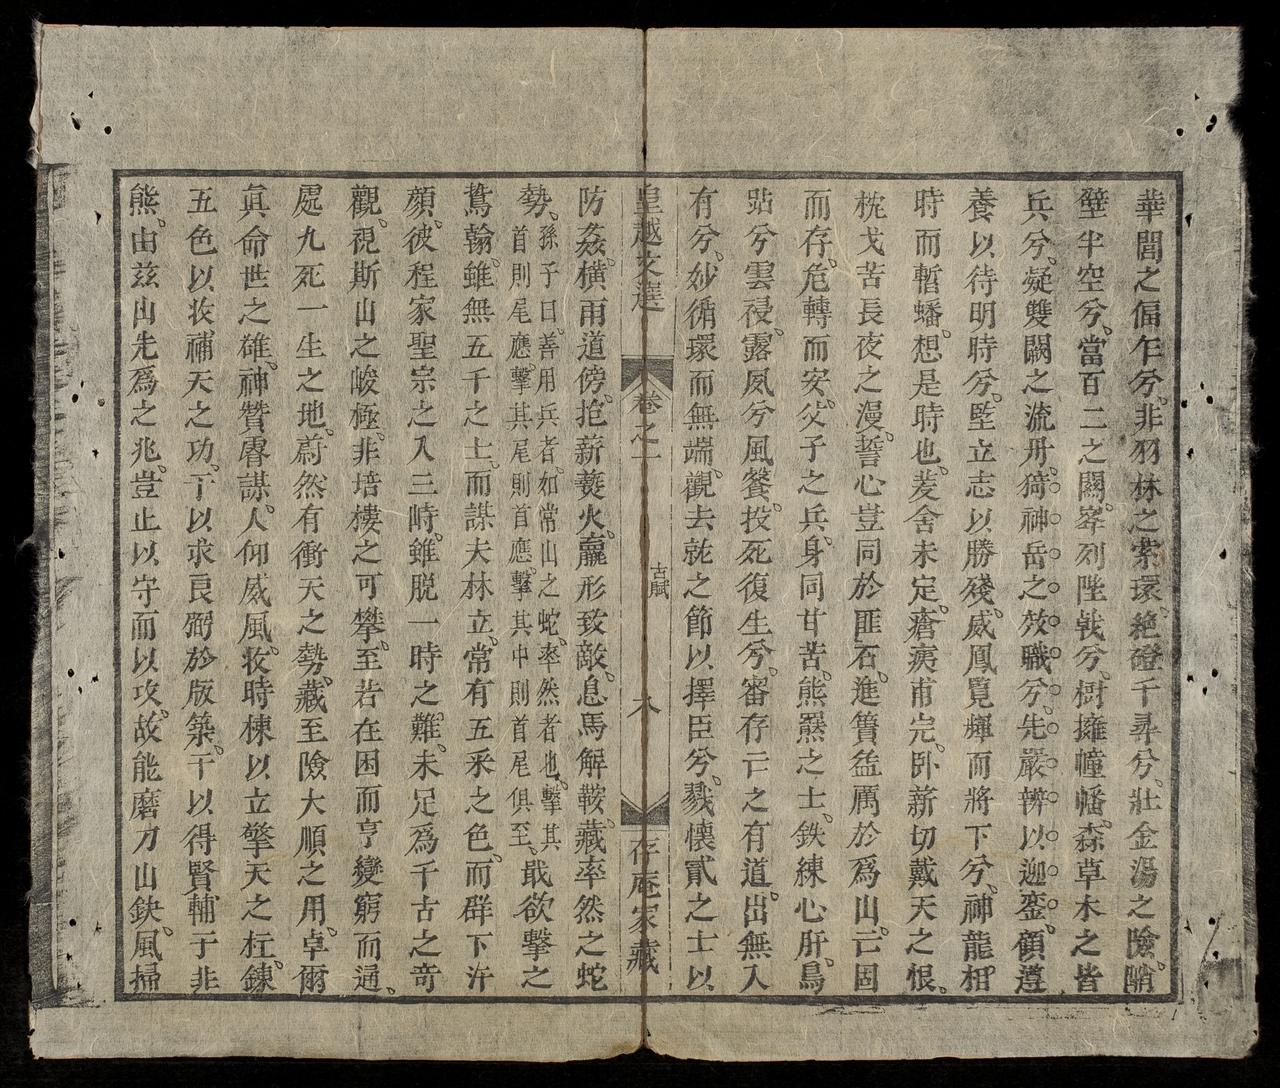 華閭之偪乍兮。非羽林之索環。絶磴千尋兮。壯金湯之險。陗
壁半空兮。當百二之關。峯列陛戟兮。樹擁幢幡。森草木之皆
兵兮。疑雙闕之流丹。猗神岳之效職兮。先嚴辨以迦鑾。顧遵
養以待明時兮。堅立志以勝殘。威鳳覽輝而將下兮。神龍相
時而暫蟠。想是時也。茇舍未定。瘡痍甫完。卧薪切戴天之恨。
枕戈苦長夜之漫。誓心豈同於匪石。進簣益厲於爲山。亡固
而存。危轉而安。父子之兵。身同甘苦。熊羆之士。鉄練心肝。鳥
跕兮雲祲。露夙兮風餐。投死復生兮。審存亡之有道。出無入
有兮。妙循環而無端。觀去就之節以擇臣兮。戮懷貳之士以
皇越文選 卷之一 古賦 八 存庵家藏
防姦。橫雨道傍。抱薪𤎩火。麤形致敵。息馬解鞍。藏率然之蛇
勢。孫子曰。善用兵者。如常山之蛇。率然者也。擊其
首則尾應。擊其尾則首應。擊其中則首尾俱至。最欲擊之
鷙翰。雖無五千之士。而謀夫林立。常有五釆之色。而群下汴
顔。彼程家聖宗之入三峙。雖脱一時之難。未足爲千古之竒
觀。視斯山之峻極。非培樓之可攀。至若在困而亨。變窮而通。
處九死一生之地。蔚然有衝天之勢。藏至險大順之用。卓爾
眞命世之雄。神贊睿謀。人仰威風。收時棟以立擎天之柱。鍊
五色以收補天之功。于以求良弼於版築。于以得賢輔于非
熊。由兹山先爲之兆。豈止以守而以攻。故能磨刀山鈌。風掃